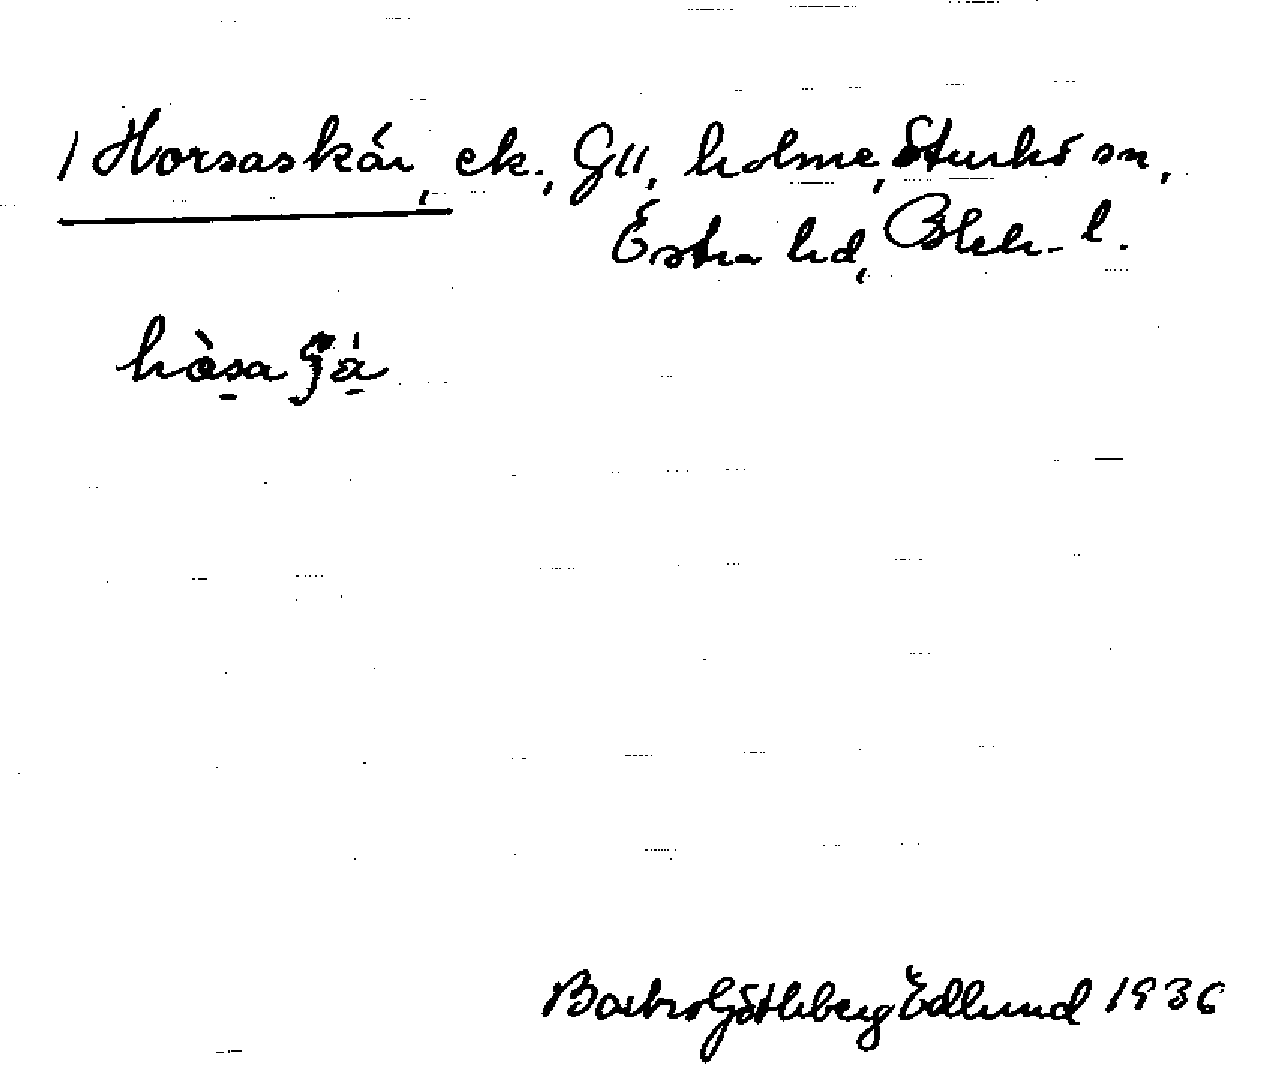 1 Horsaskär, ek., Gll, holme, Sturkö sn,
Östra hd, Blek. l.
hàsa
Barbro Götleberg Edlund 1936